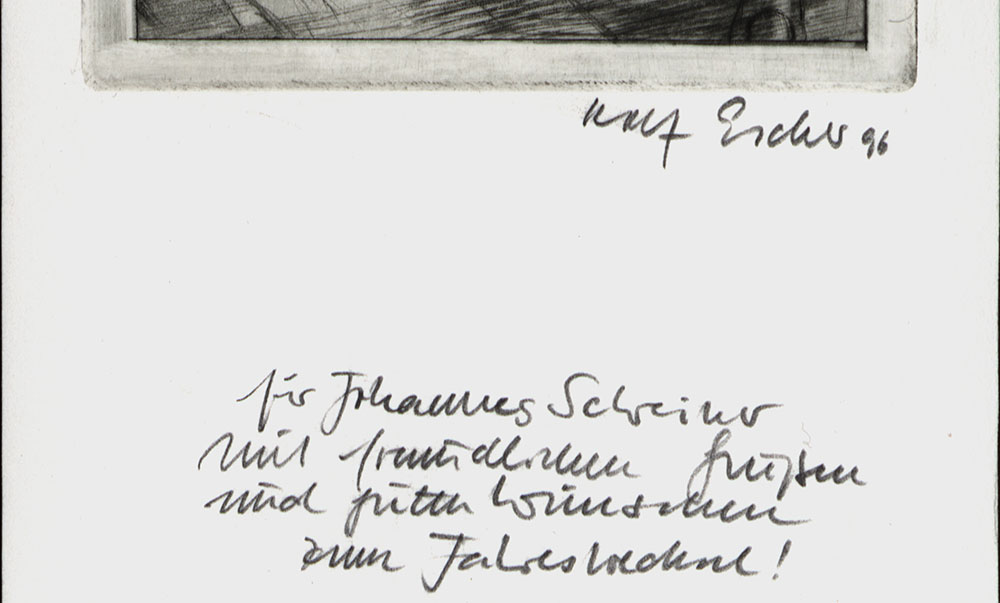 Rolf Escher 96
für Johannes Schreiner
mit freundlichen Grüßen
und guten Wünschen
zum Jahreswechsel!